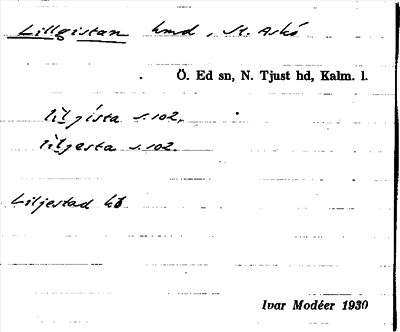 Lillgistan hmd, St. Askö
Ö. Ed sn, N. Tjust hd, Kalm. l.
lilgista s. 102,
lilgesta s. 102.
Liljestad kb
Ivar Modéer 1930